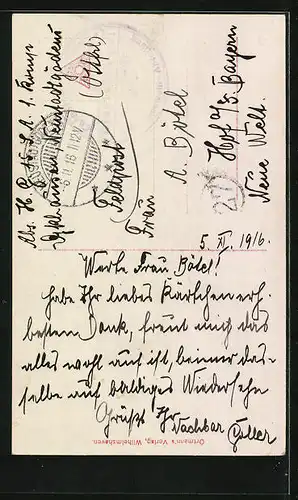 Feldpost
Frau
A. Bötel
Hof i/B. Bayern
Neue Welt.
5. XI. 1916.
Werte Frau Bötel!
habe Ihr liebes Kärtchen erh.
besten Dank, freut mich das
alles wohl auf ist, bei mir das-
selbe auf baldiges Wiedersehn
Grüßt Ihr
Nachbar Goller
Ortmann's Verlag, Wilhelmshaven.